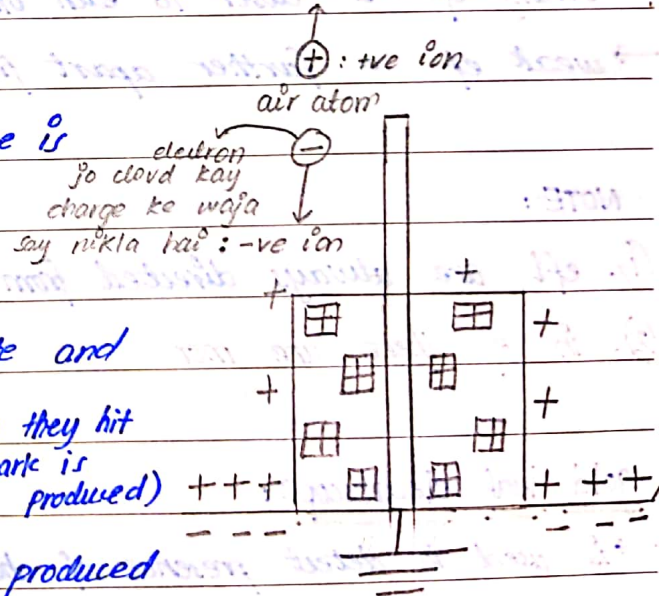 + : +ve ion
air atom
e is
electron
−
jo cloud kay
charge ke waja
say nikla hai : -ve ion
+ +
e and
+
+ +
they hit
ark is
produced) + + + + + +
− − − − − − −
produced